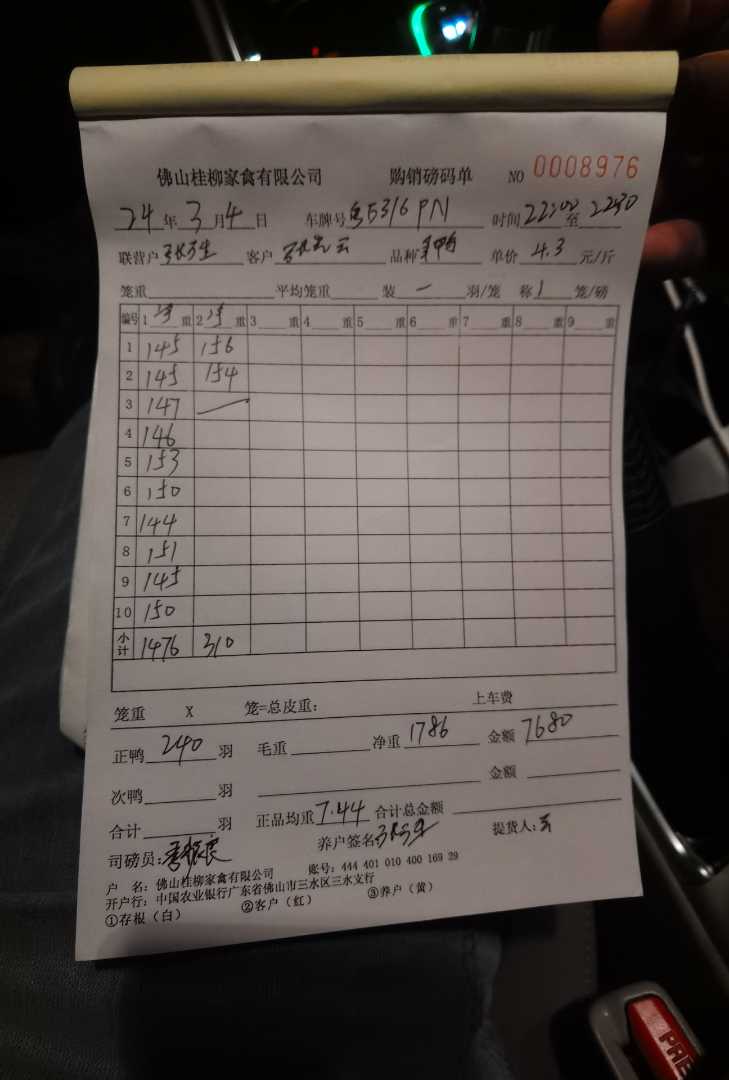 佛山桂柳家禽有限公司 购销磅码单 NO 0008976
24年3月4日 车牌号 5316PN 时间22:00至2230
联营户 客户 品种 单价 4.3 元/斤
笼重 平均笼重 装 一 羽/笼 称 1 笼/磅
编号 1净重 2净重 3重 4重 5重 6重 7重 8重 9重
1 145 156
2 145 154
3 147
4 146
5 153
6 150
7 144
8 151
9 145
10 150
小计 1476 310
笼重 X 笼=总皮重: 上车费
正鸭 240 羽 毛重 净重 1786 金额 7680
次鸭 羽 金额
合计 羽 正品均重 7.44 合计总金额
司磅员: 养户签名 提货人:
户 名: 佛山桂柳家禽有限公司 账号: 444 401 010 400 169 29
开户行: 中国农业银行广东省佛山市三水区三水支行
①存根(白) ②客户(红) ③养户(黄)